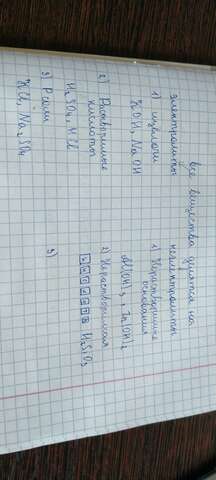 все вещества делятся на
электролиты неэлектролиты
1) щелочи
KOH, NaOH
2) Растворимые
кислоты
H2SO4, HCl
3) Р соли
KCl, Na2SO4
1) Нерастворимые
основания
Al(OH)3, Zn(OH)2
2) Нерастворимая
H2SiO3
3)